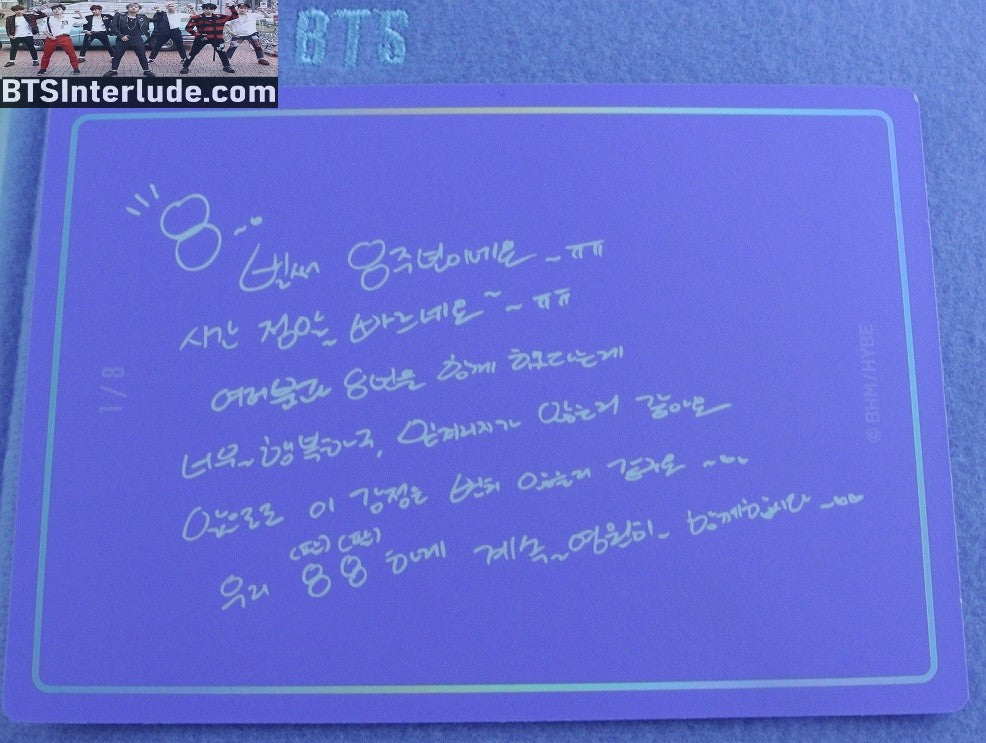 BTS
BTSInterlude.com
8~
벌써 8주년이네요~ㅠㅠ
시간 정말 빠르네요~~ㅠㅠ
여러분과 8년을 함께 했다는게
너무~행복하고, 믿겨지지가 않는거 같아요
앞으로도 이 감정은 변치 않을거 같구요~
(팔) (팔)
우리 88하게 계속~영원히~ 함께합시다~
1/8
© BHM/HYBE